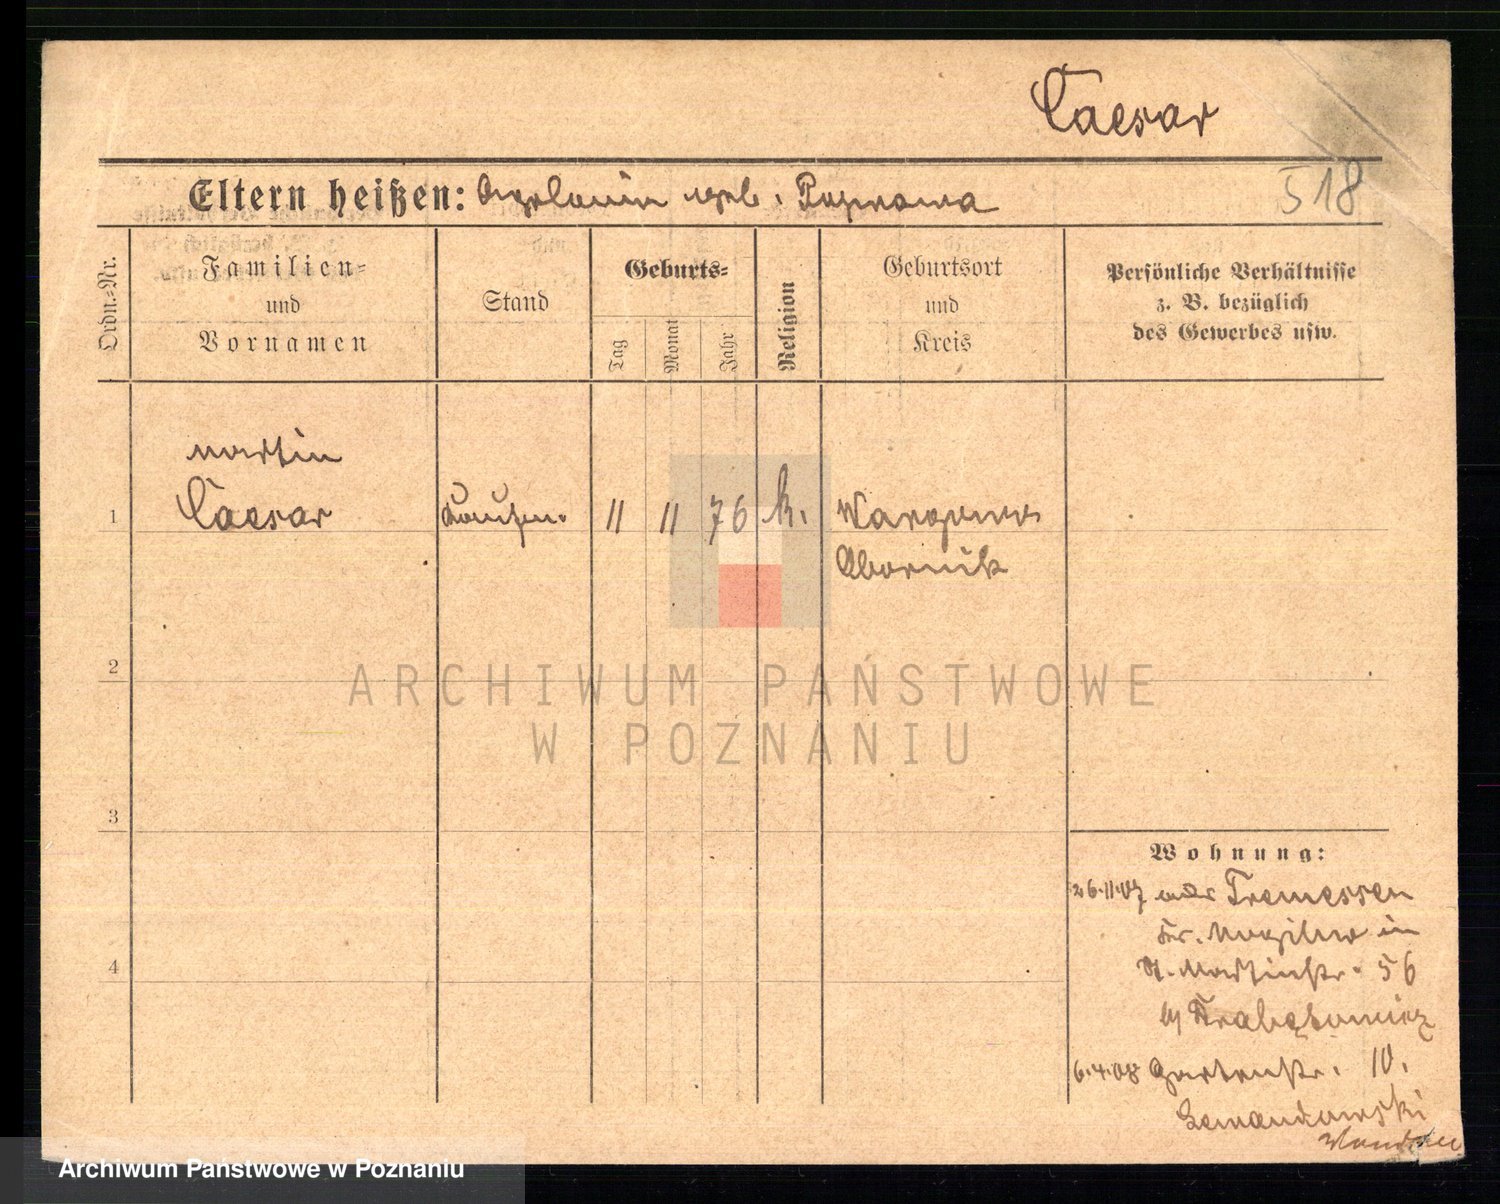 Caesar
518
Eltern heißen: geb. Poznowa
Ordn.-Nr.
Familien-
und
Vornamen
Stand
Geburts-
Tag
Monat
Jahr
Religion
Geburtsort
und
Kreis
Persönliche Verhältnisse
z. B. bezüglich
des Gewerbes usw.
Martin
1 Caesar 11 11 76 k.
Obornik
2
3
4
ARCHIWUM PAŃSTWOWE
W POZNANIU
Wohnung:
26.11.07 aus Tremessen
Kr. Mogilno in
St. Martinstr. 56
by
6.4.08 Gartenstr. 10.
Lewandowski
Archiwum Państwowe w Poznaniu